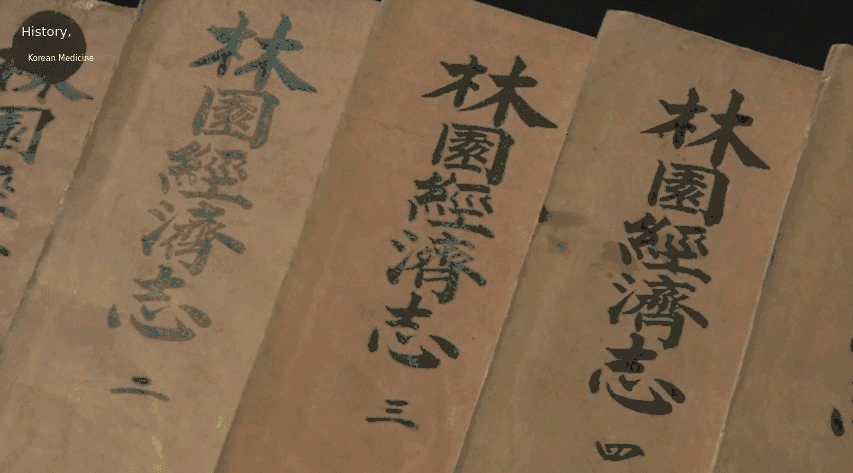 History,
Korean Medicine
林園經濟志 二
林園經濟志 三
林園經濟志 四